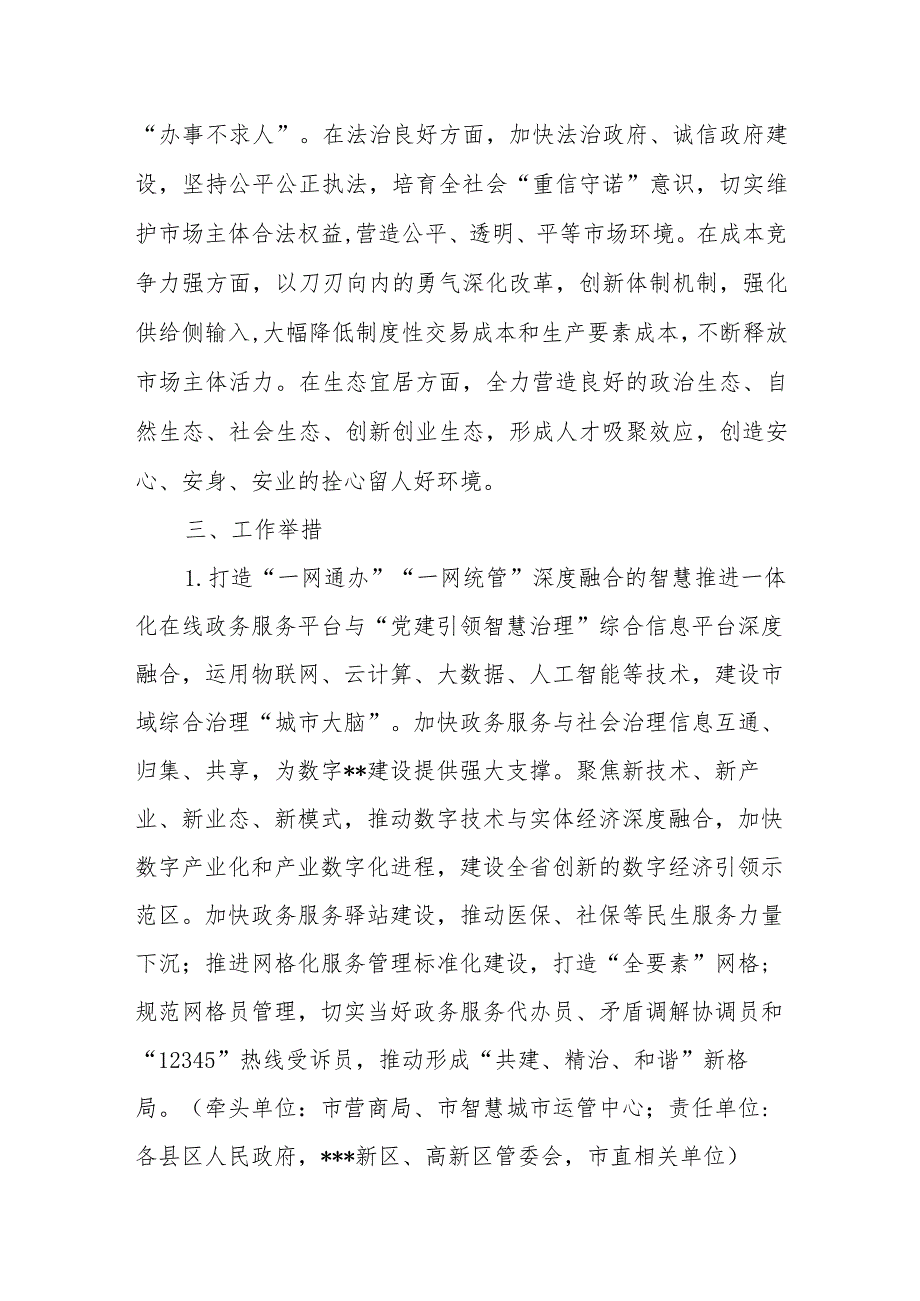 “办事不求人”。在法治良好方面，加快法治政府、诚信政府建
设，坚持公平公正执法，培育全社会“重信守诺”意识，切实维
护市场主体合法权益,营造公平、透明、平等市场环境。在成本竞
争力强方面，以刀刃向内的勇气深化改革，创新体制机制，强化
供给侧输入,大幅降低制度性交易成本和生产要素成本，不断释放
市场主体活力。在生态宜居方面，全力营造良好的政治生态、自
然生态、社会生态、创新创业生态，形成人才吸聚效应，创造安
心、安身、安业的拴心留人好环境。
三、工作举措
1.打造“一网通办”“一网统管”深度融合的智慧推进一体
化在线政务服务平台与“党建引领智慧治理”综合信息平台深度
融合，运用物联网、云计算、大数据、人工智能等技术，建设市
域综合治理“城市大脑”。加快政务服务与社会治理信息互通、
归集、共享，为数字**建设提供强大支撑。聚焦新技术、新产
业、新业态、新模式，推动数字技术与实体经济深度融合，加快
数字产业化和产业数字化进程，建设全省创新的数字经济引领示
范区。加快政务服务驿站建设，推动医保、社保等民生服务力量
下沉；推进网格化服务管理标准化建设，打造“全要素”网格；
规范网格员管理，切实当好政务服务代办员、矛盾调解协调员和
“12345”热线受诉员，推动形成“共建、精治、和谐”新格
局。（牵头单位：市营商局、市智慧城市运管中心；责任单位:
各县区人民政府，***新区、高新区管委会，市直相关单位）